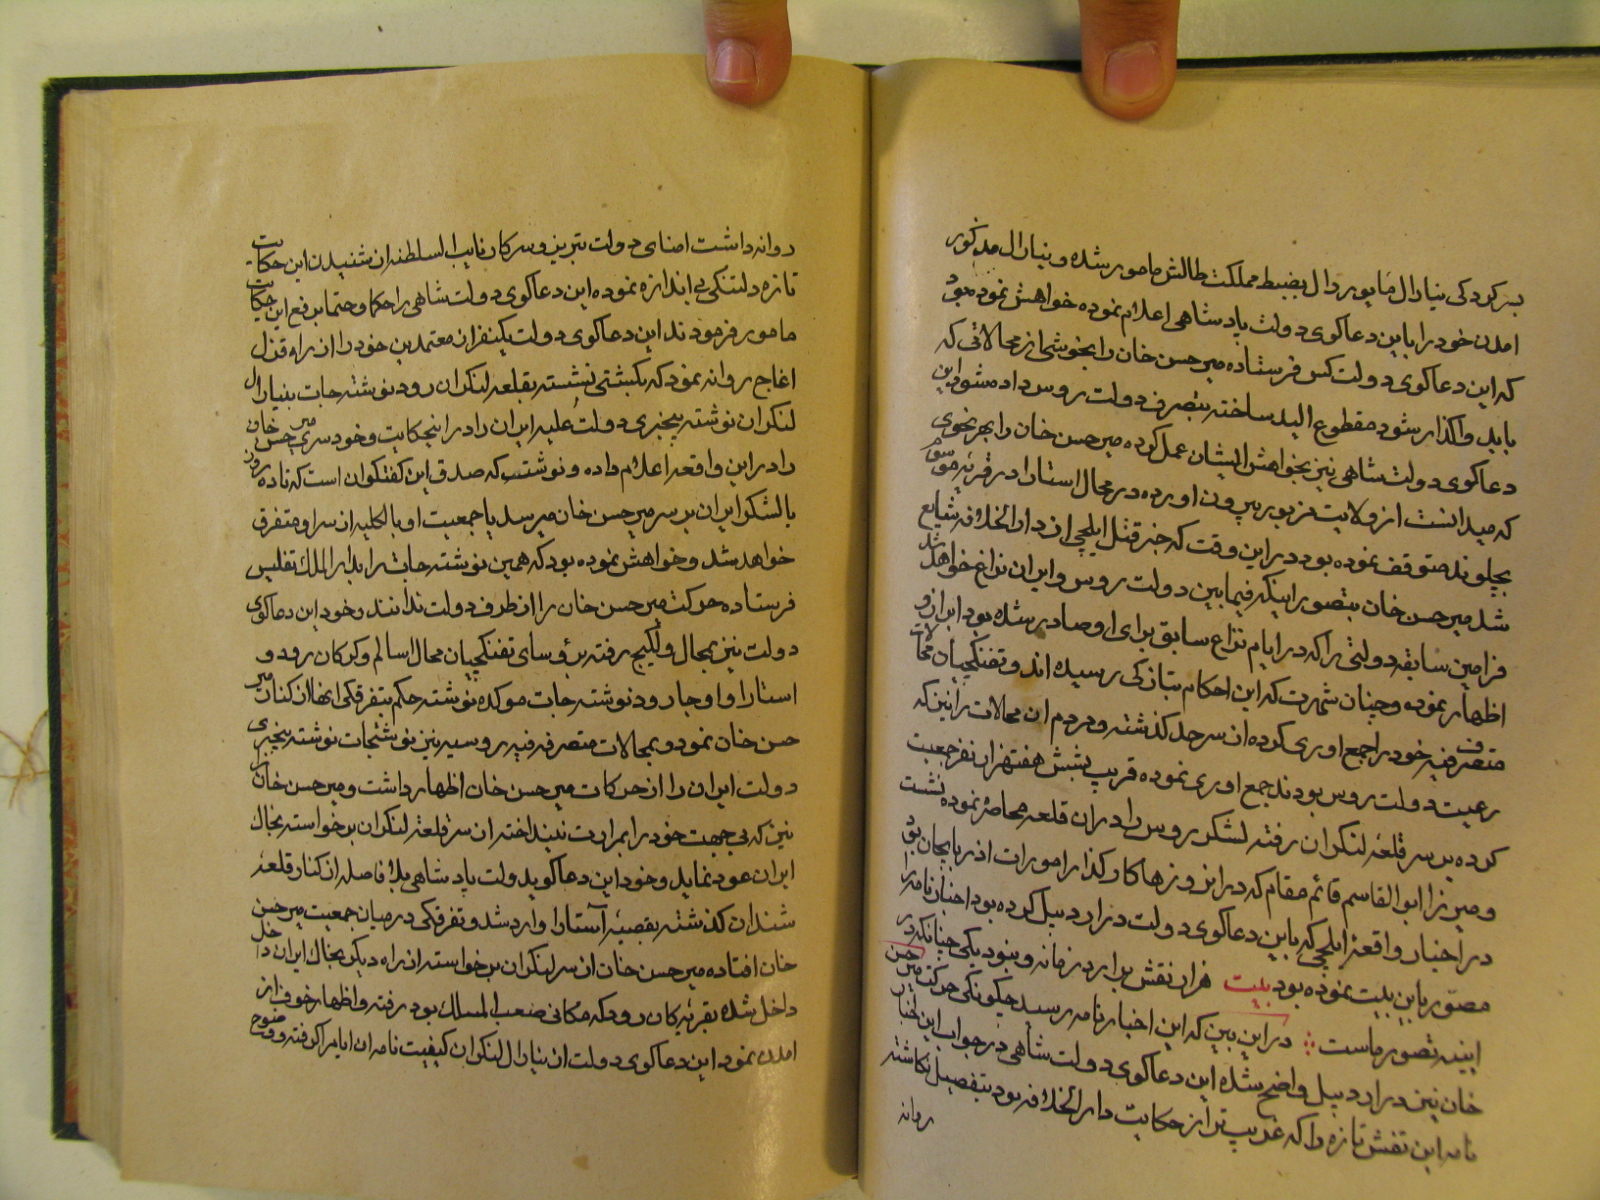 بسرکردکی ینارال مایور رال بضبط مملکت طالش مامور شده و ینارال مذکور
امدن خود را باین دعاکوی دولت پادشاهی اعلام نموده خواهش نموده بود
که این دعاکوی دولت کس فرستاده میر حسن خان را بخوشی از محالاتی که
باید واکذار شود مقطوع الید ساخته بتصرف دولت روس داده شود این
دعاکوی دولت شاهی نیز بخواهش ایشان عمل کرده میر حسن خان را بهر نحوی
که میدانست از ولایت مزبور بیرون اورده در محال استارا در قریه موسوم
بچلوند متوقف نموده بود در این وقت که خبر قتل ایلچی از دار الخلافه شایع
شد میر حسن خان بتصور اینکه فیما بین دولت روس و ایران نزاع خواهد شد
فرامین سابقه دولتی را که در ایام نزاع سابق برای او صادر شده بود ابراز و
اظهار نموده و چنان شهرت که این احکام بتازکی رسیده اند و تفنکچیان محالات
متصرفیه خود را جمع اوری کرده از سرحد کذشته و مردم ان محالات را نیز که
رعیت دولت روس بودند جمع اوری نموده قریب بشش هفت هزار نفر جمعیت
کرده بر سر قلعه لنکران رفته لشکر روس را در ان قلعه محاصره نموده نشست
و میرزا ابو القاسم قائم مقام که در ان روزها کارکذار امورات اذربایجان بود
در اخبار واقعه ایلچی که باین دعاکوی دولت در اردبیل کرده بود اخبار نامه را
مصور باین بیت نموده بود بیت هزار نقش برارد زمانه و نبود یکی چنانکه در
اینه تصور ماست در این بین که این اخبار نامه رسید چکونکی حرکت میر حسن
خان نیز در اردبیل واضح شده این دعاکوی دولت شاهی در جواب این اخبار
نامه این نقش تازه را که غریب تر از حکایت دار الخلافه بود بتفصیل نکاشته
روانه
روانه داشت امنای دولت تبریز و سرکار نایب السلطنه از شنیدن این حکایت
تازه دلتنکی بی اندازه نموده این دعاکوی دولت شاهی را حکما و حتما برفع این حکایت
مامور فرمودند این دعاکوی دولت یکنفر از معتمدین خود را از راه قزل
اغاج روانه نمود که بکشتی نشسته بقلعه لنکران رود نوشته جات بینارال
لنکران نوشته بیخبری دولت علیه ایران را در اینحکایت و خود سری میر حسن خان
را در این واقعه اعلام داده و نوشت که صدق این کفتکو ان است که تا ده روز
با لشکر ایران بر سر میر حسن خان میرسد یا جمعیت او بالکلیه از سر او متفرق
خواهد شد و خواهش نموده بود که همین نوشته جات را بدار الملک تفلیس
فرستاده حرکت میر حسن خان را از طرف دولت ندانند و خود این دعاکوی
دولت نیز بمحال ولکیج رفته برؤسای تفنکچیان محال اسالم و کرکان رود و
استارا و اوجارود نوشته جات موکده نوشته حکم بتفرقکی انها از کنار میر
حسن خان نمود و بمحالات متصرفه فیه روسیه نیز نوشتجات نوشته بیخبری
دولت ایران را از حرکات میر حسن خان اظهار داشت و میر حسن خان
نیز که بی جهت خود را بمرارت نینداخته از سر قلعه لنکران برخواسته بخاک
ایران عود نماید و خود این دعاکوی دولت پادشاهی بلا فاصله از کنار قلعه
شندان کذشته بقصبه آستارا وارد شد و تفرقکی در میان جمعیت میر حسن
خان افتاده میر حسن خان از سر لنکران برخواسته از راه دیکر بخاک ایران داخل
داخل شده بقریه کان رود که مکانی صعب المسالک بود رفته و اظهار خوف از
امدن نمود این دعاکوی دولت از ینارال لنکران کیفیت نامه ان ایام را کرفته و وضوح